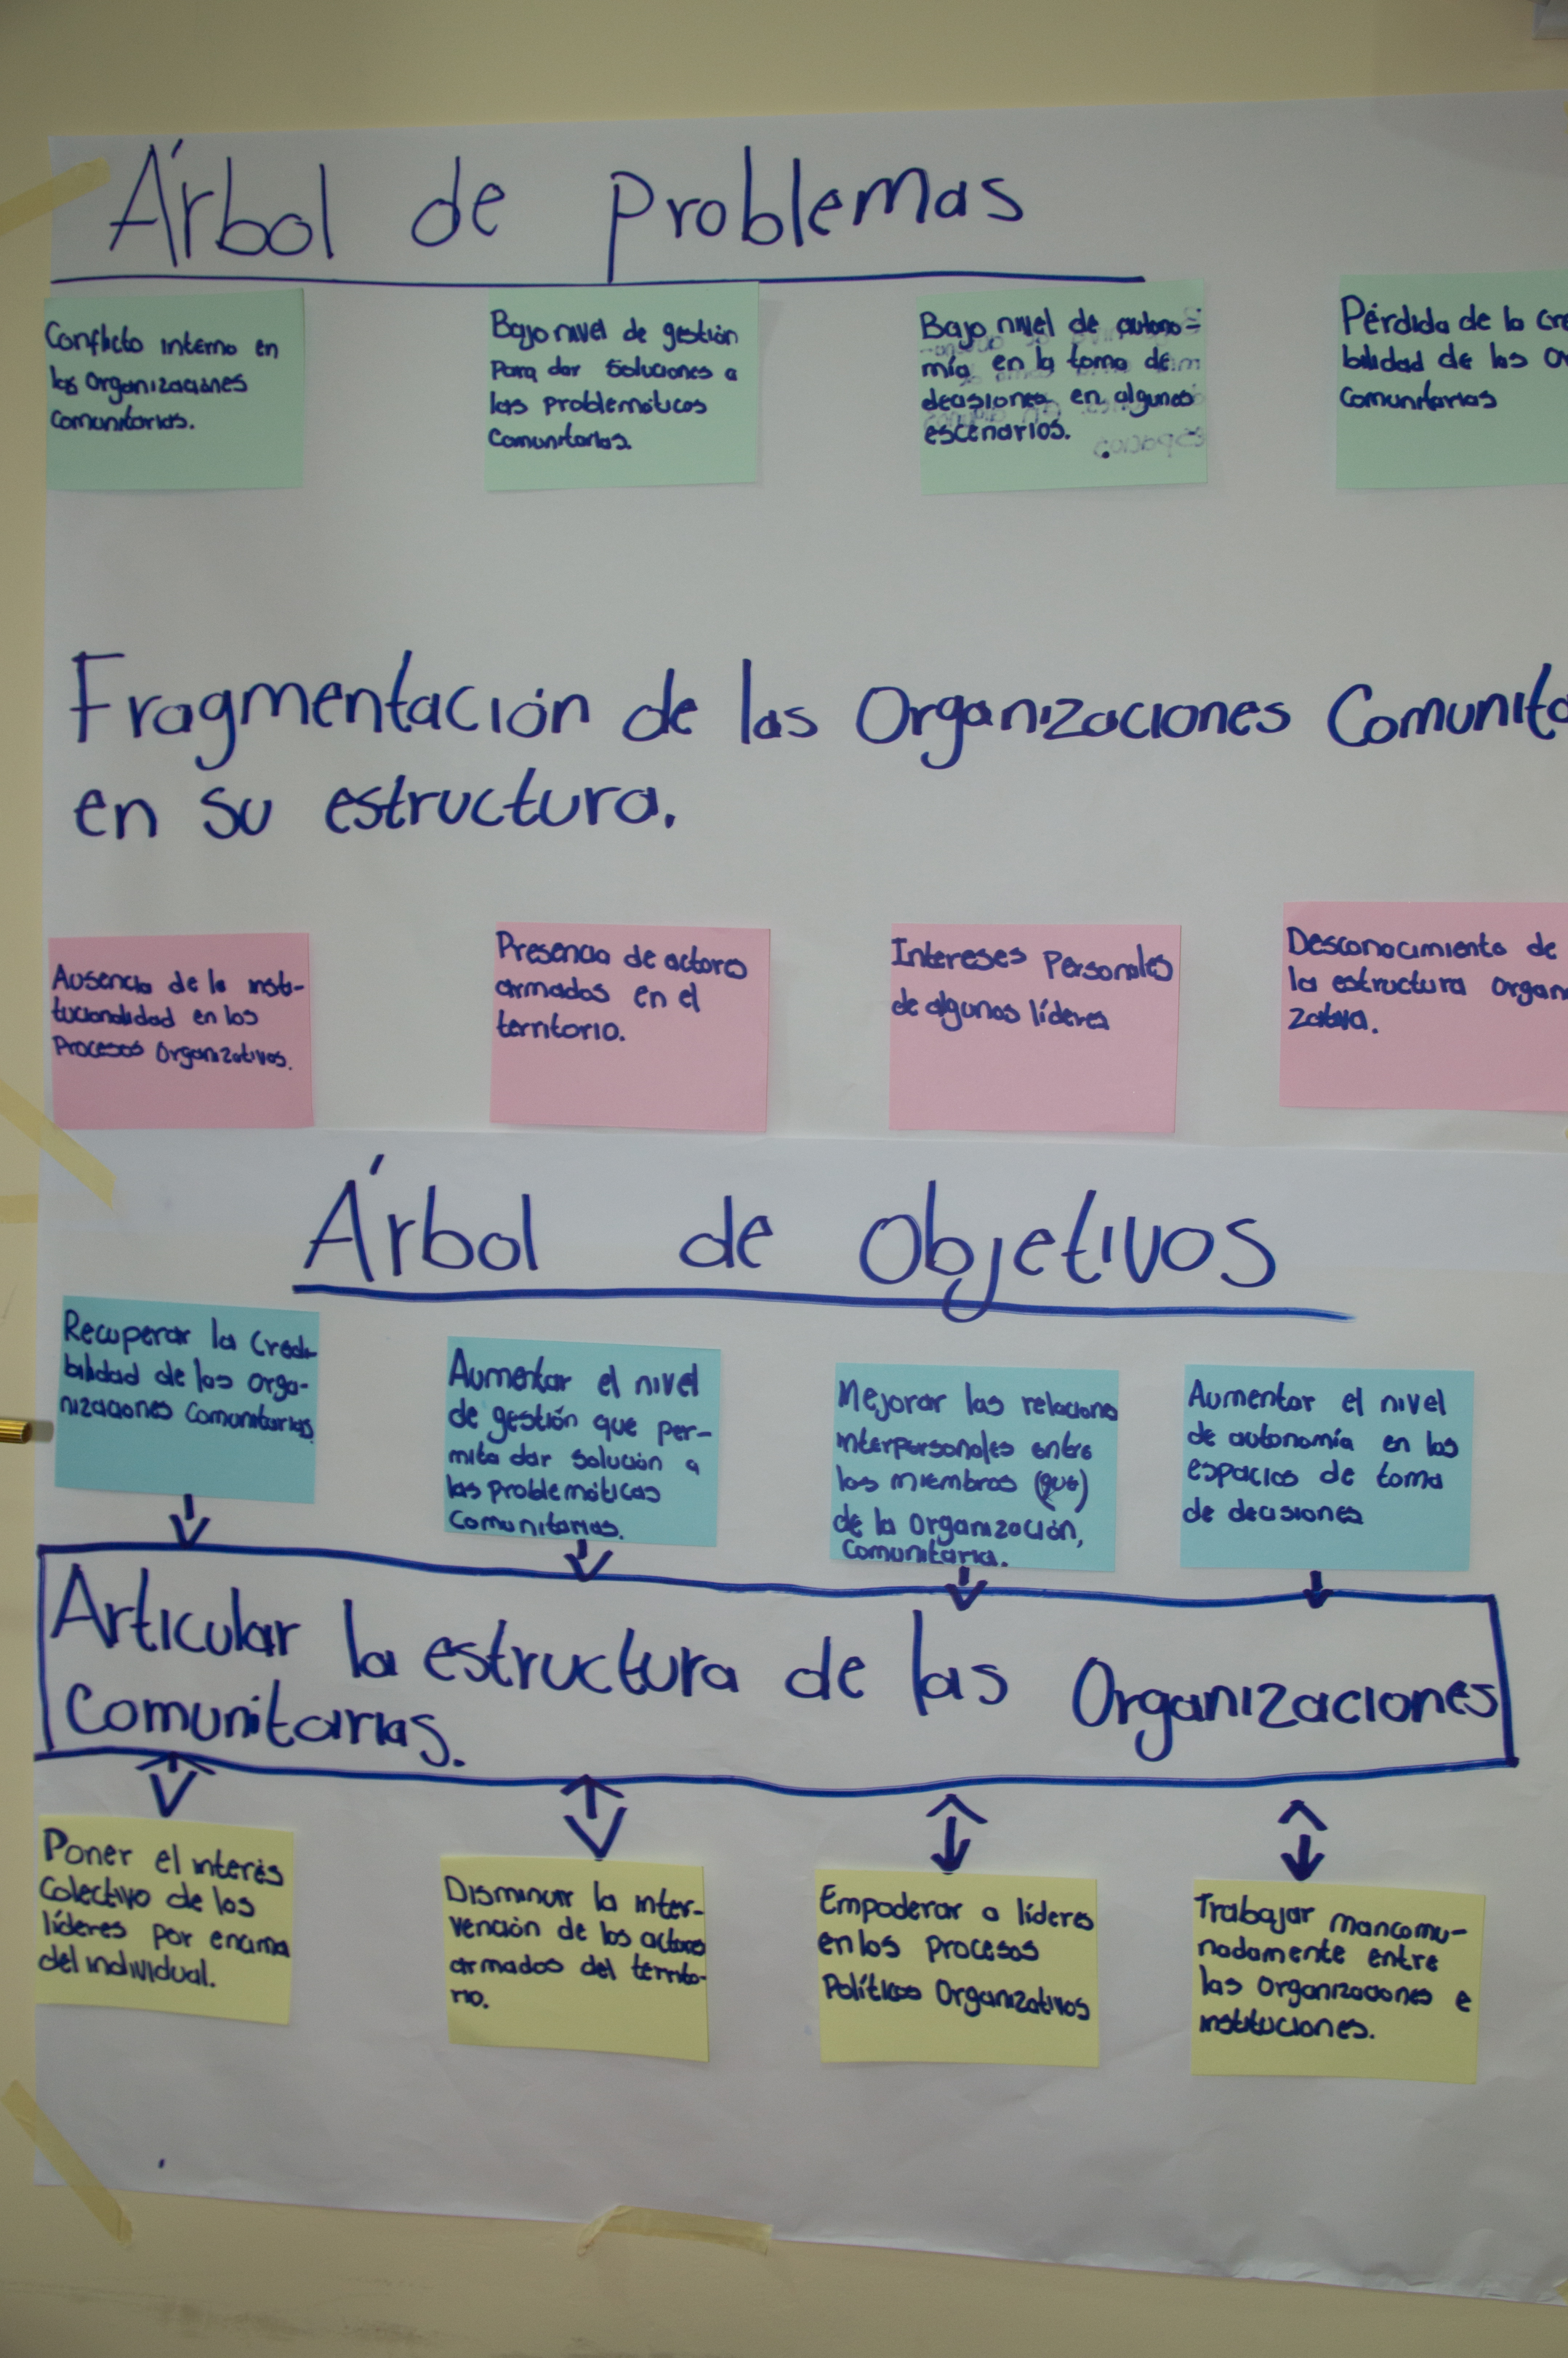 Árbol de problemas
Conflicto interno en
las organizaciones
comunitarias.
Bajo nivel de gestión
para dar soluciones a
las problemáticas
comunitarias.
Bajo nivel de autono=
mía en la toma de
decisiones en algunos
escenarios.
Pérdida de la cre
bilidad de las or
comunitarias
Fragmentación de las Organizaciones Comunita
en su estructura.
Ausencia de la insti-
tucionalidad en los
procesos organizativos.
Presencia de actores
armados en el
territorio.
Intereses personales
de algunos líderes
Desconocimiento de
la estructura organ
zativa.
Árbol de Objetivos
Recuperar la credi-
bilidad de las orga-
nizaciones comunitarias.
Aumentar el nivel
de gestión que per-
mita dar solución a
las problemáticas
comunitarias.
Mejorar las relaciones
interpersonales entre
los miembros (que)
de la organización,
comunitaria.
Aumentar el nivel
de autonomía en los
espacios de toma
de decisiones
Articular la estructura de las Organizaciones
Comunitarias.
Poner el interés
colectivo de los
líderes por encima
del individual.
Disminuir la inter-
vención de los actores
armados del territo-
rio.
Empoderar a líderes
en los procesos
Políticos Organizativos
Trabajar mancomu-
nadamente entre
las organizaciones e
instituciones.